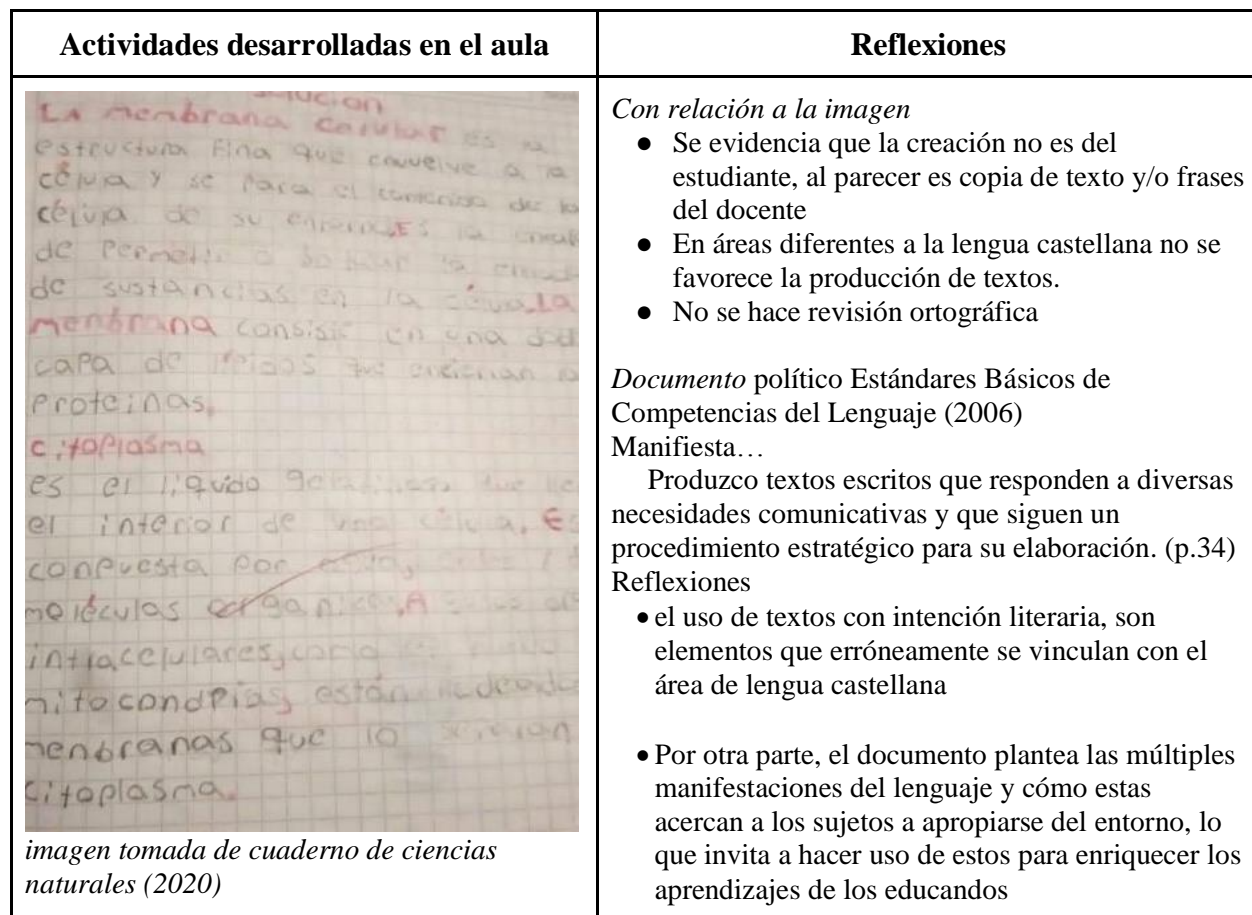 Actividades desarrolladas en el aula
Reflexiones
La menbrana celular es
estructura Fina que envuelve a la
célula y se para el contenido de la
célula de su Es la
de
de sustancias en la La
menbrana consiste en una
capa de que
proteinas.
citoplasma
es el liquido que
el interior de una célula, Es
conpuesta por
moléculas A
intracelulares, como
mitocondrias, están
menbranas que lo
citoplasma.
imagen tomada de cuaderno de ciencias
naturales (2020)
Con relación a la imagen
● Se evidencia que la creación no es del
estudiante, al parecer es copia de texto y/o frases
del docente
● En áreas diferentes a la lengua castellana no se
favorece la producción de textos.
● No se hace revisión ortográfica
Documento político Estándares Básicos de
Competencias del Lenguaje (2006)
Manifiesta…
Produzco textos escritos que responden a diversas
necesidades comunicativas y que siguen un
procedimiento estratégico para su elaboración. (p.34)
Reflexiones
● el uso de textos con intención literaria, son
elementos que erróneamente se vinculan con el
área de lengua castellana
● Por otra parte, el documento plantea las múltiples
manifestaciones del lenguaje y cómo estas
acercan a los sujetos a apropiarse del entorno, lo
que invita a hacer uso de estos para enriquecer los
aprendizajes de los educandos